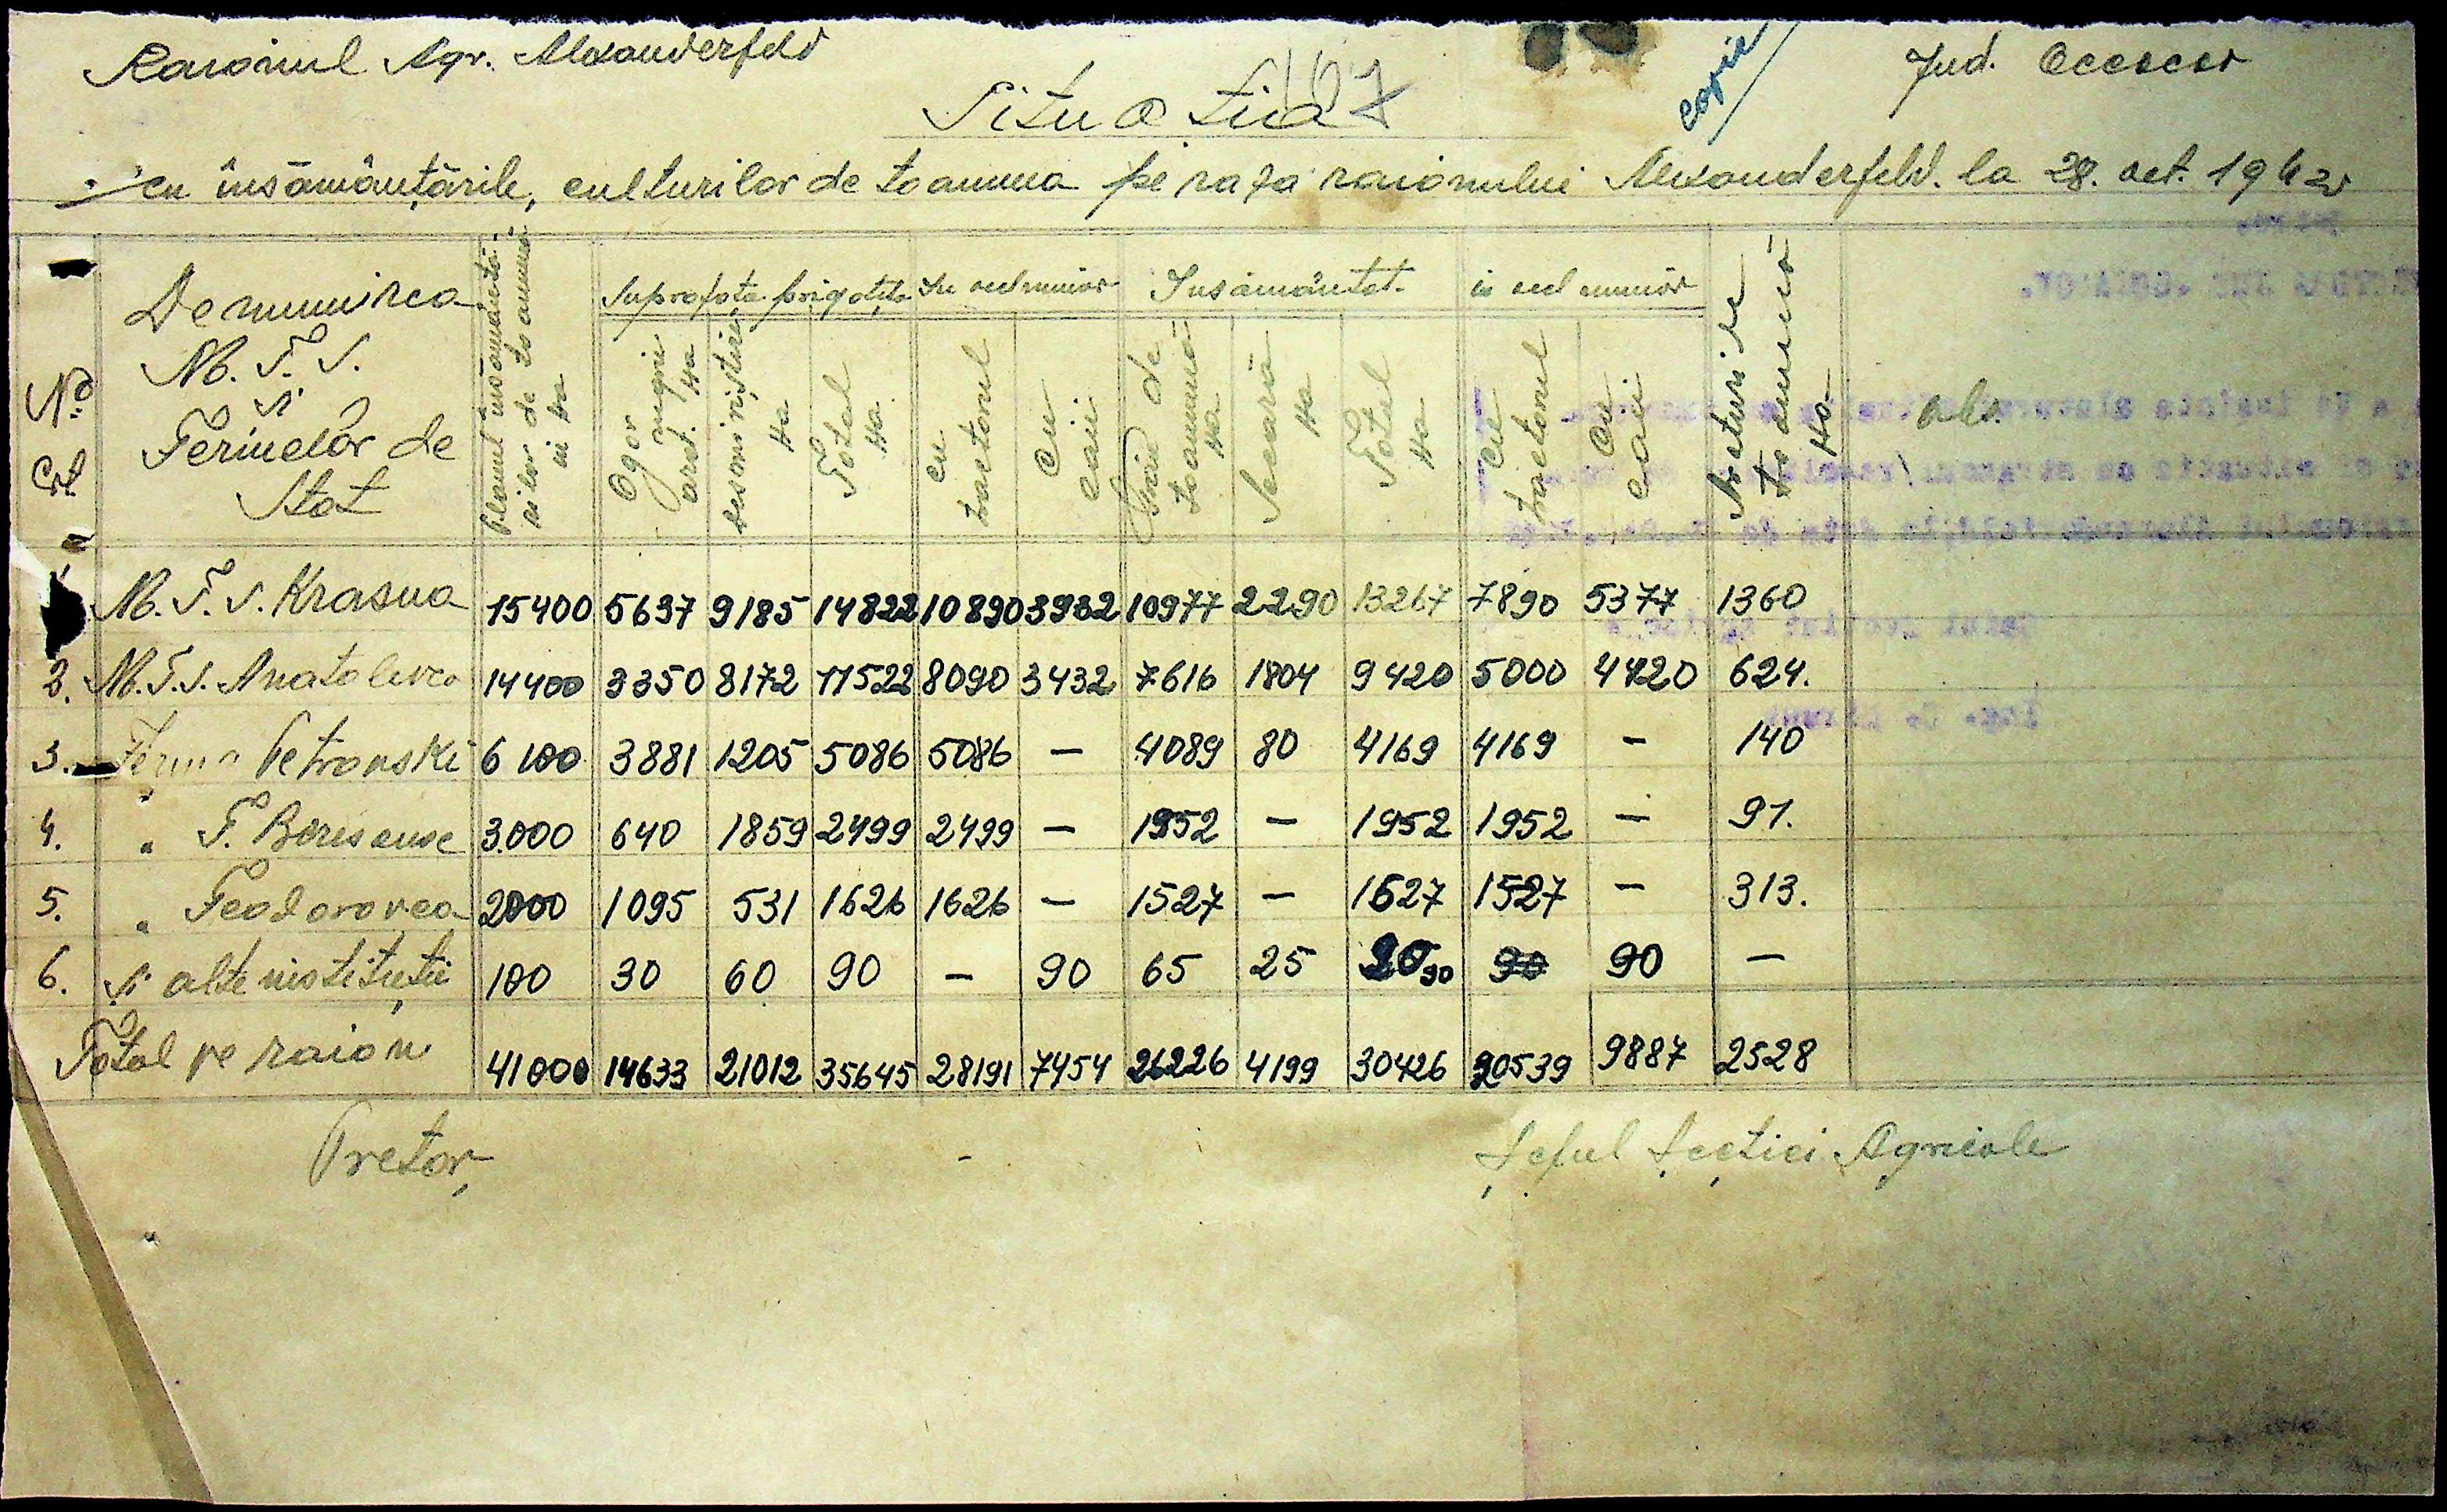 Raionul Agr. Alexanderfeld
copie
Jud. Oceacov
Situația
107
cu însămânțările, culturilor de toamna pe raza raionului Alexanderfeld. la 28. oct. 1942
No Crt
Denumirea M. T. S. și Fermelor de Stat
planul însămânțărilor de toamnă in Ha
Suprafata prigatita
in acelmuiar
Insământat
in acelmuiar
Araturi de toamnă Ha
obs.
Ogor negru arat. Ha
desmiriștire Ha
Total Ha
cu tractorul
cu caii
Grâu de toamnă Ha
Secară Ha
Total Ha
cu tractorul
cu caii
M. T. S. Krasna 15400 5637 9185 14822 10890 3932 10977 2290 13267 7890 5377 1360
2. M.T.S. Anatolevca 14400 3350 8172 11522 8090 3432 7616 1804 9420 5000 4420 624.
3. Ferma Petrovski 6100 3881 1205 5086 5086 — 4089 80 4169 4169 — 140
4. " F. Borisanve 3.000 640 1859 2499 2499 — 1952 — 1952 1952 — 91.
5. " Feodorovca 2000 1095 531 1626 1626 — 1527 — 1527 1527 — 313.
6. și alte instituții 100 30 60 90 — 90 65 25 90 90 90 —
Total pe raion 41000 14633 21012 35645 28191 7454 26226 4199 30426 20539 9887 2528
Pretor,
Șeful Secției Agricole